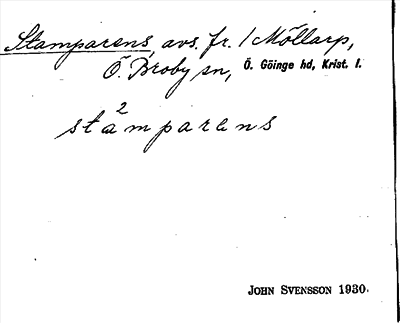 Stamparens, avs. fr. 1 Möllarp,
Ö. Broby sn, Ö. Göinge hd, Krist. l.
2
stamparens
JOHN SVENSSON 1930.